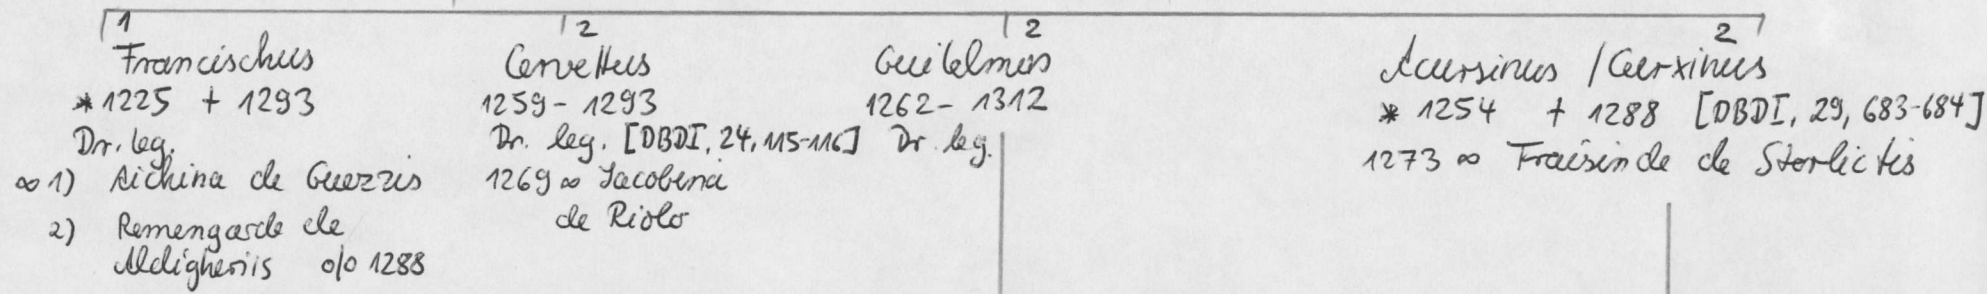 1
Francischus
* 1225 + 1293
Dr. leg.
∞ 1) Aichina de Guezzis
2) Remengarde de
Aldigheriis o|o 1288
2
Cervettus
1259 - 1293
Dr. leg. [DBDI, 24, 115-116]
1269 ∞ Jacobina
de Riolo
2
Guilelmus
1262 - 1312
Dr. leg.
2
Acursinus / Curxinus
* 1254 + 1288 [DBDI, 29, 683-684]
1273 ∞ de